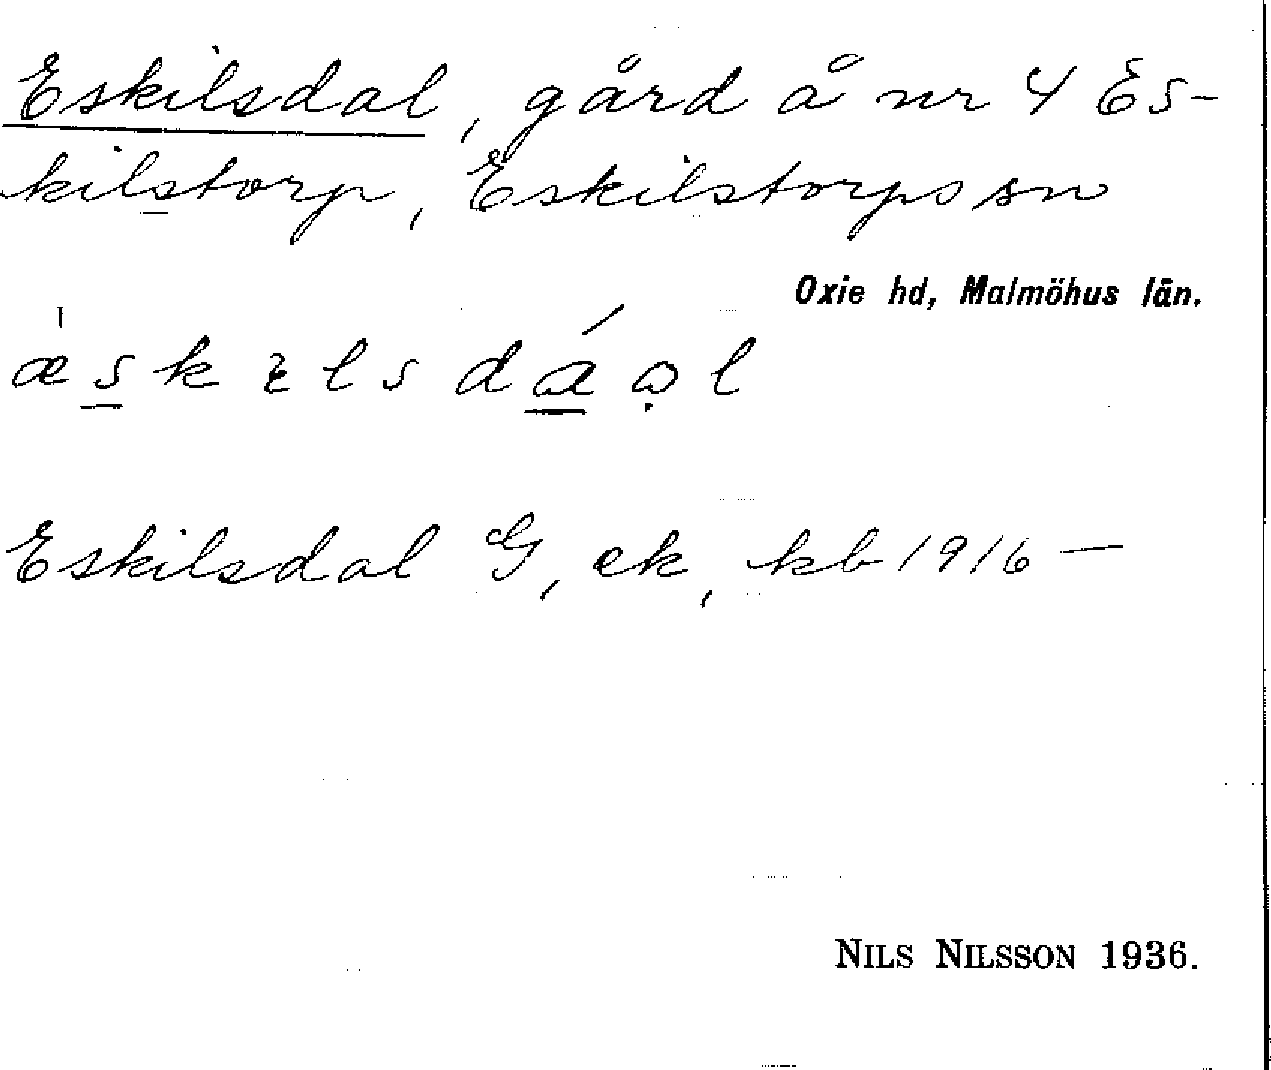 Eskilsdal, gård å nr 4 Es-
kilstorp, Eskilstorps sn
Oxie hd, Malmöhus län.
Eskilsdal G, ek, kb 1916 —
NILS NILSSON 1936.